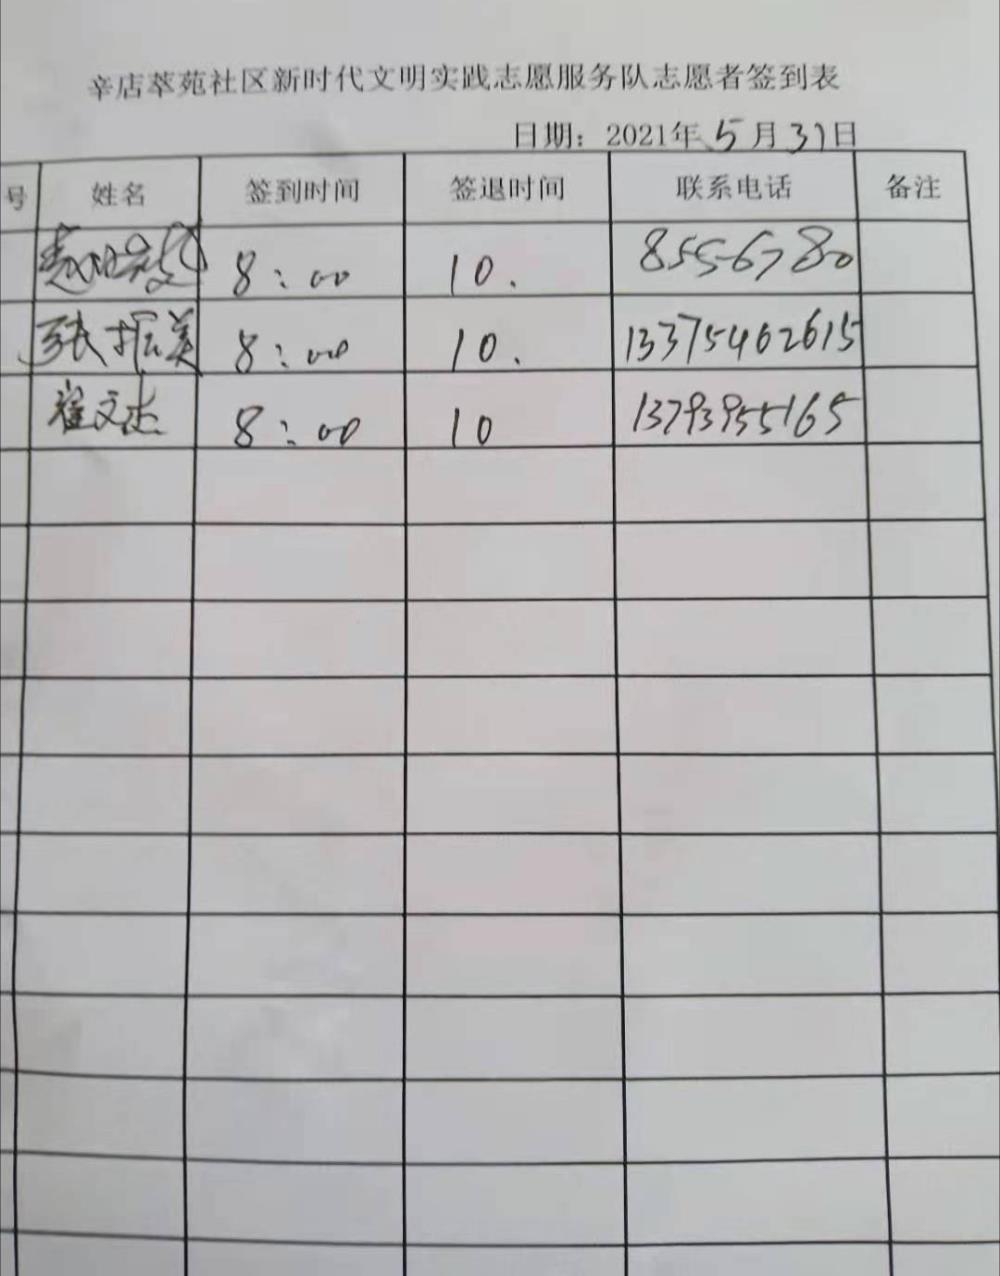 辛店萃苑社区新时代文明实践志愿服务队志愿者签到表
日期：2021年5月31日
号 姓名 签到时间 签退时间 联系电话 备注
8:00 10. 8556780
张振美 8:00 10. 13375462615
崔文杰 8:00 10 13793955165